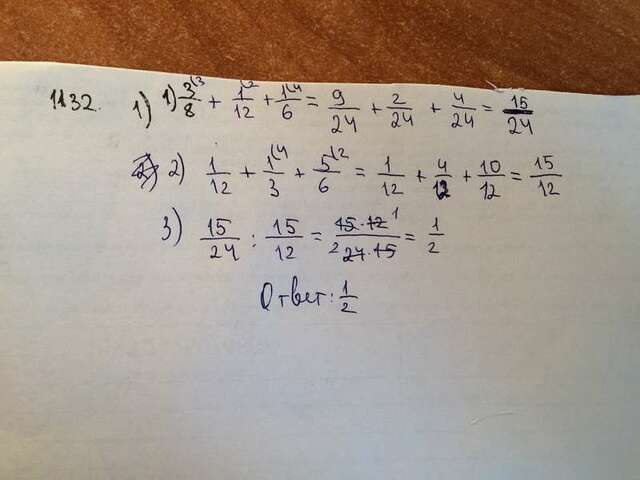 1132.
1) 1) 3/8 \3 + 1/12 \2 + 1/6 \4 = 9/24 + 2/24 + 4/24 = 15/24
2) 1/12 + 1/3 \4 + 5/6 \2 = 1/12 + 4/12 + 10/12 = 15/12
3) 15/24 : 15/12 = 15·12 1/2 24·15 = 1/2
Ответ: 1/2